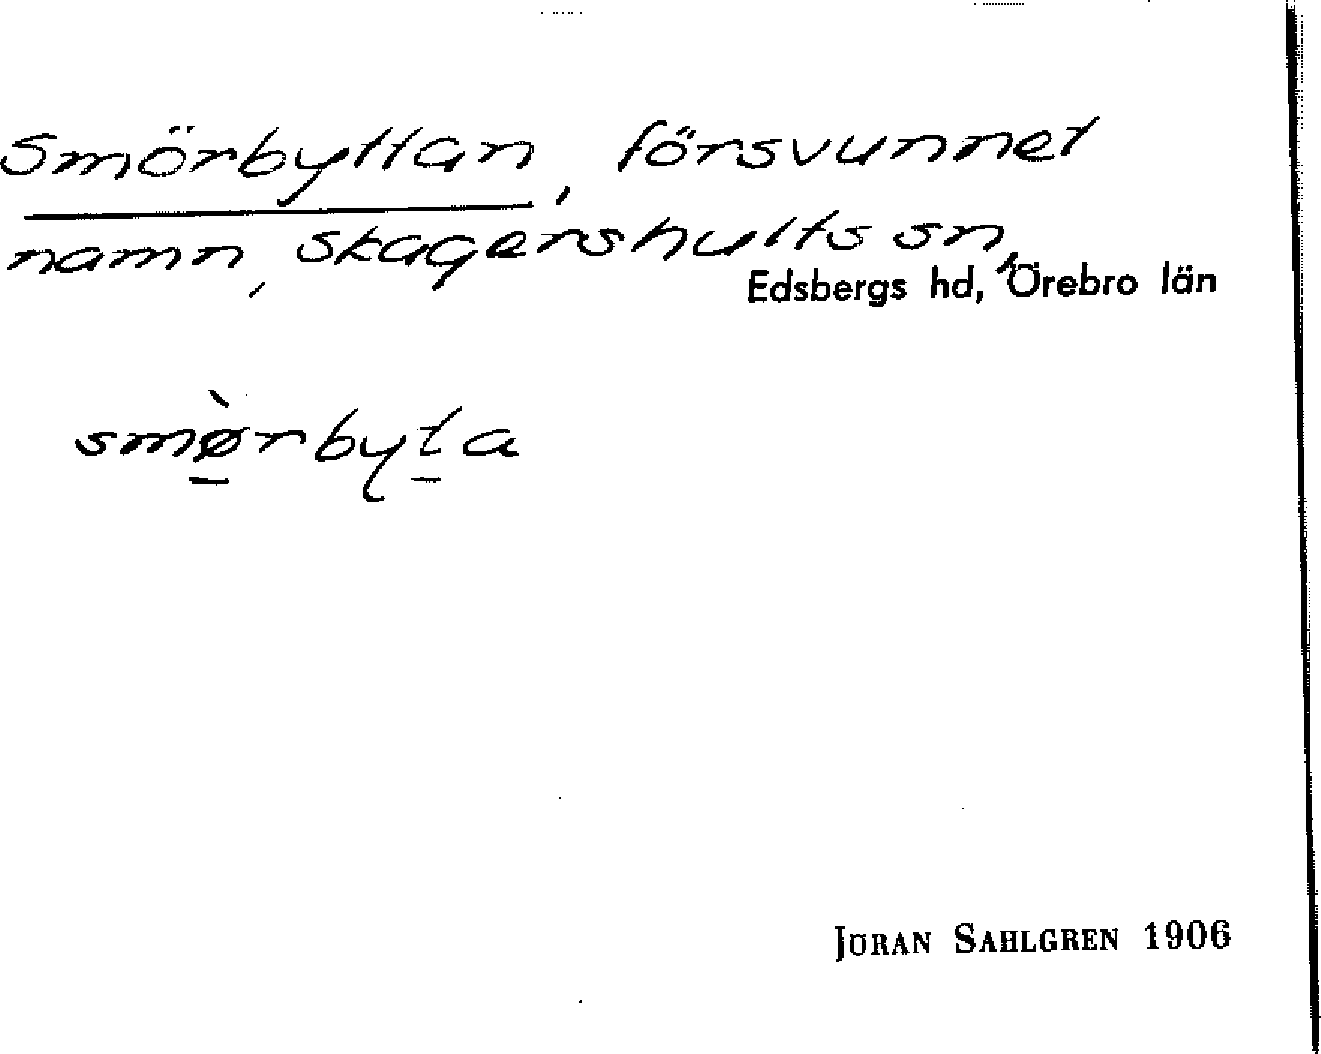 Smörbyttan, försvunnet
namn, Skagershults sn,
Edsbergs hd, Örebro län
smø̱̀rbyṯa
JÖRAN SAHLGREN 1906